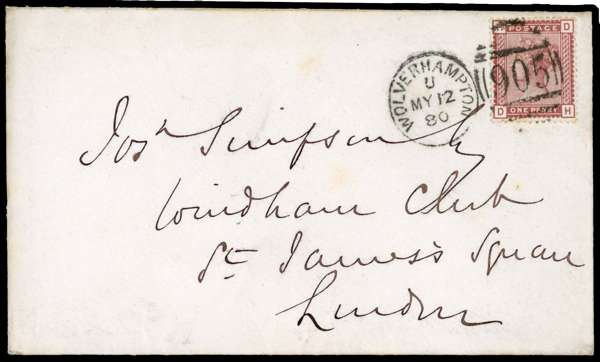 H D
POSTAGE
905
D ONE PENNY H
WOLVERHAMPTON
U
MY 12
80
Josh Simpson Esq
Windham Club
St James's Square
London